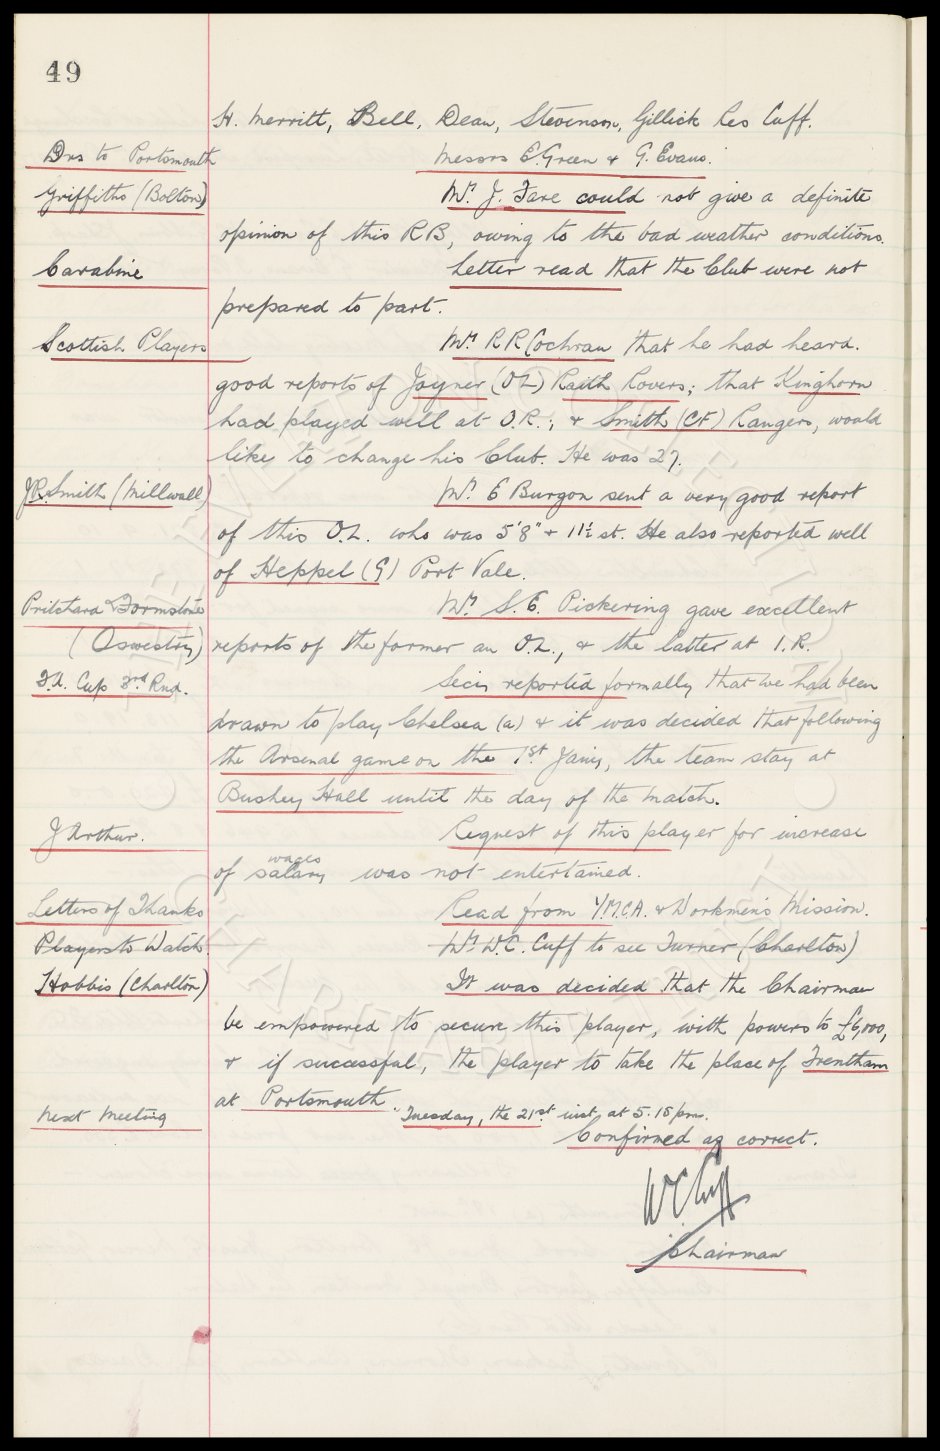 49
H. Merritt, Bell, Dean, Stevenson, Gillick Res Cuff.
Drs to Portsmouth Messrs E. Green & G. Evans.
Griffiths (Bolton) Mr. J. Fare could not give a definite
opinion of this RB, owing to the bad weather conditions.
Carabine Letter read that the Club were not
prepared to part.
Scottish Players Mr. R R Cochran that he had heard.
good reports of Joyner (OL) Raith Rovers; that Kinghorn
had played well at O.R.; & Smith (CF) Rangers, would
like to change his Club. He was 27.
J.R. Smith (Millwall) Mr. E Burgon sent a very good report
of this O.L. who was 5'8" & 11½ st. He also reported well
of Heppel (G) Port Vale.
Pritchard & Formstone Mr. S. E. Pickering gave excellent
(Oswestry) reports of the former an O.L., & the latter at I.R.
F.A. Cup 3rd Rnd. Secy reported formally that we had been
drawn to play Chelsea (a) & it was decided that following
the Arsenal game on the 1st Jany, the team stay at
Bushey Hall until the day of the match.
J Arthur. Request of this player for increase
wages
of salary was not entertained.
Letters of Thanks Read from Y.M.C.A. & Workmen's Mission.
Players to Watch Mr. W.C. Cuff to see Turner (Charlton)
Hobbis (Charlton) It was decided that the Chairman
be empowered to secure this player, with powers to £6,000,
& if successful, the player to take the place of Trentham
at Portsmouth
Next Meeting Tuesday, the 21st inst, at 5.15 pm.
Confirmed as correct.
W C Cuff
Chairman